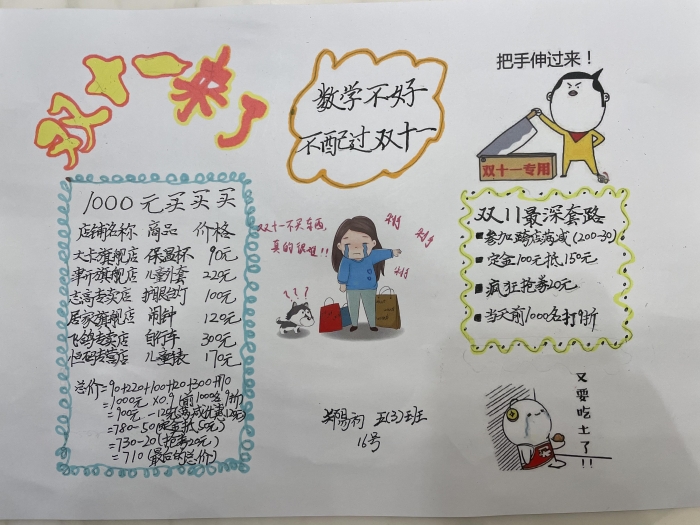 双十一来了
数学不好
不配过双十一
把手伸过来！
双十一专用
1000元买买买
店铺名称 商品 价格
大卡旗舰店 保温杯 90元
旗舰店 儿童外套 220元
志高专卖店 护眼台灯 100元
居家旗舰店 闹钟 120元
飞鸽专卖店 自行车 300元
恒码专营店 儿童表 170元
总价=90+220+100+120+300+170
=1000元×0.9(前1000名9折)
=900元-120元(满减优惠120元)
=780-50(定金抵50元)
=730-20(抢券20元)
=710(最后的总价)
双十一不买东西,
真的很难!!
???
双11最深套路
参加跨店满减(200-30)
定金100元抵150元
疯狂抢券20元
当天前1000名打9折
又要吃土了!!
郑易初 五(3)班
16号